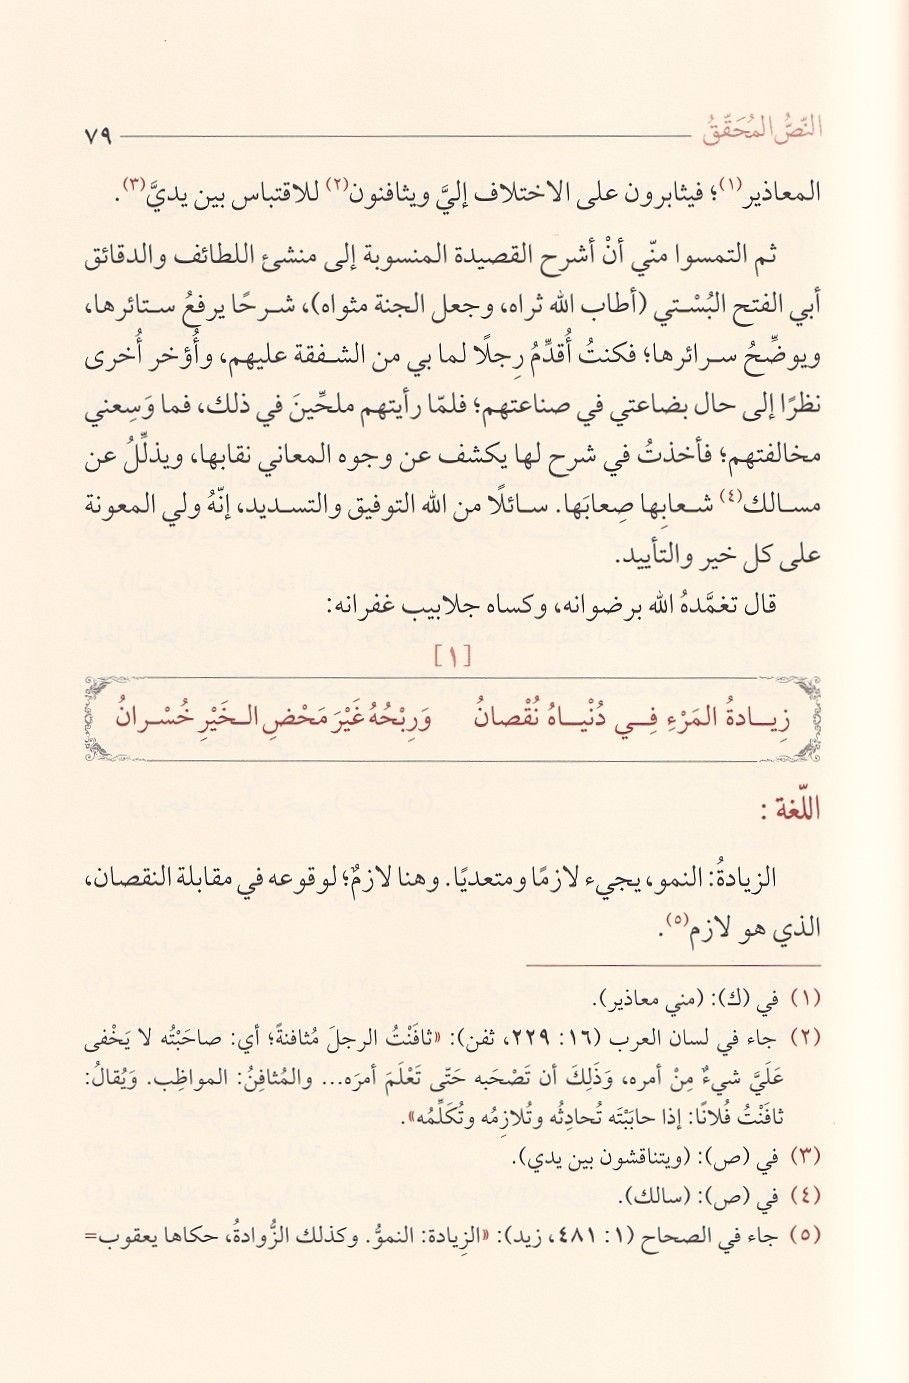 النّصُّ المُحَقّقُ ٧٩
المعاذير(١)؛ فيثابرون على الاختلاف إليَّ ويثافنون(٢) للاقتباس بين يديَّ(٣).
ثم التمسوا منّي أنْ أشرح القصيدة المنسوبة إلى منشئ اللطائف والدقائق
أبي الفتح البُسْتي (أطاب الله ثراه، وجعل الجنة مثواه)، شرحًا يرفعُ ستائرها،
ويوضِّحُ سرائرها؛ فكنتُ أُقدِّمُ رِجلًا لما بي من الشفقة عليهم، وأُؤخر أُخرى
نظرًا إلى حال بضاعتي في صناعتهم؛ فلمّا رأيتهم ملحِّينَ في ذلك، فما وَسِعني
مخالفتهم؛ فأخذتُ في شرح لها يكشف عن وجوه المعاني نقابها، ويذلِّلُ عن
مسالك(٤) شعابِها صِعابَها. سائلًا من الله التوفيق والتسديد، إنّهُ ولي المعونة
على كل خير والتأييد.
قال تغمَّدهُ الله برضوانه، وكساه جلابيب غفرانه:
[١]
زِيـادةُ المَرْءِ فِـي دُنْيـاهُ نُقْصانُ وَرِبْحُهُ غَيْرَ مَحْضِ الـخَيْرِ خُسْرانُ
اللّغة :
الزيادةُ: النمو، يجيء لازمًا ومتعديًا. وهنا لازمٌ؛ لوقوعه في مقابلة النقصان،
الذي هو لازم(٥).
(١) في (ك): (مني معاذير).
(٢) جاء في لسان العرب (١٦: ٢٢٩، ثفن): «ثافَنْتُ الرجلَ مُثافنةً؛ أي: صاحَبْتُه لا يَخْفى
عَلَيَّ شيءٌ مِنْ أمره، وَذَلِكَ أن تَصْحَبه حَتّى تَعْلَمَ أمرَه... والمُثافِنُ: المواظِب. وَيُقالُ:
ثافَنْتُ فُلانًا: إذا حابَبْتَه تُحادِثُه وتُلازِمُه وتُكَلِّمُه».
(٣) في (ص): (ويتناقشون بين يدي).
(٤) في (ص): (سالك).
(٥) جاء في الصحاح (١: ٤٨١، زيد): «الزِيادة: النموُّ. وكذلك الزُّوادةُ، حكاها يعقوب=